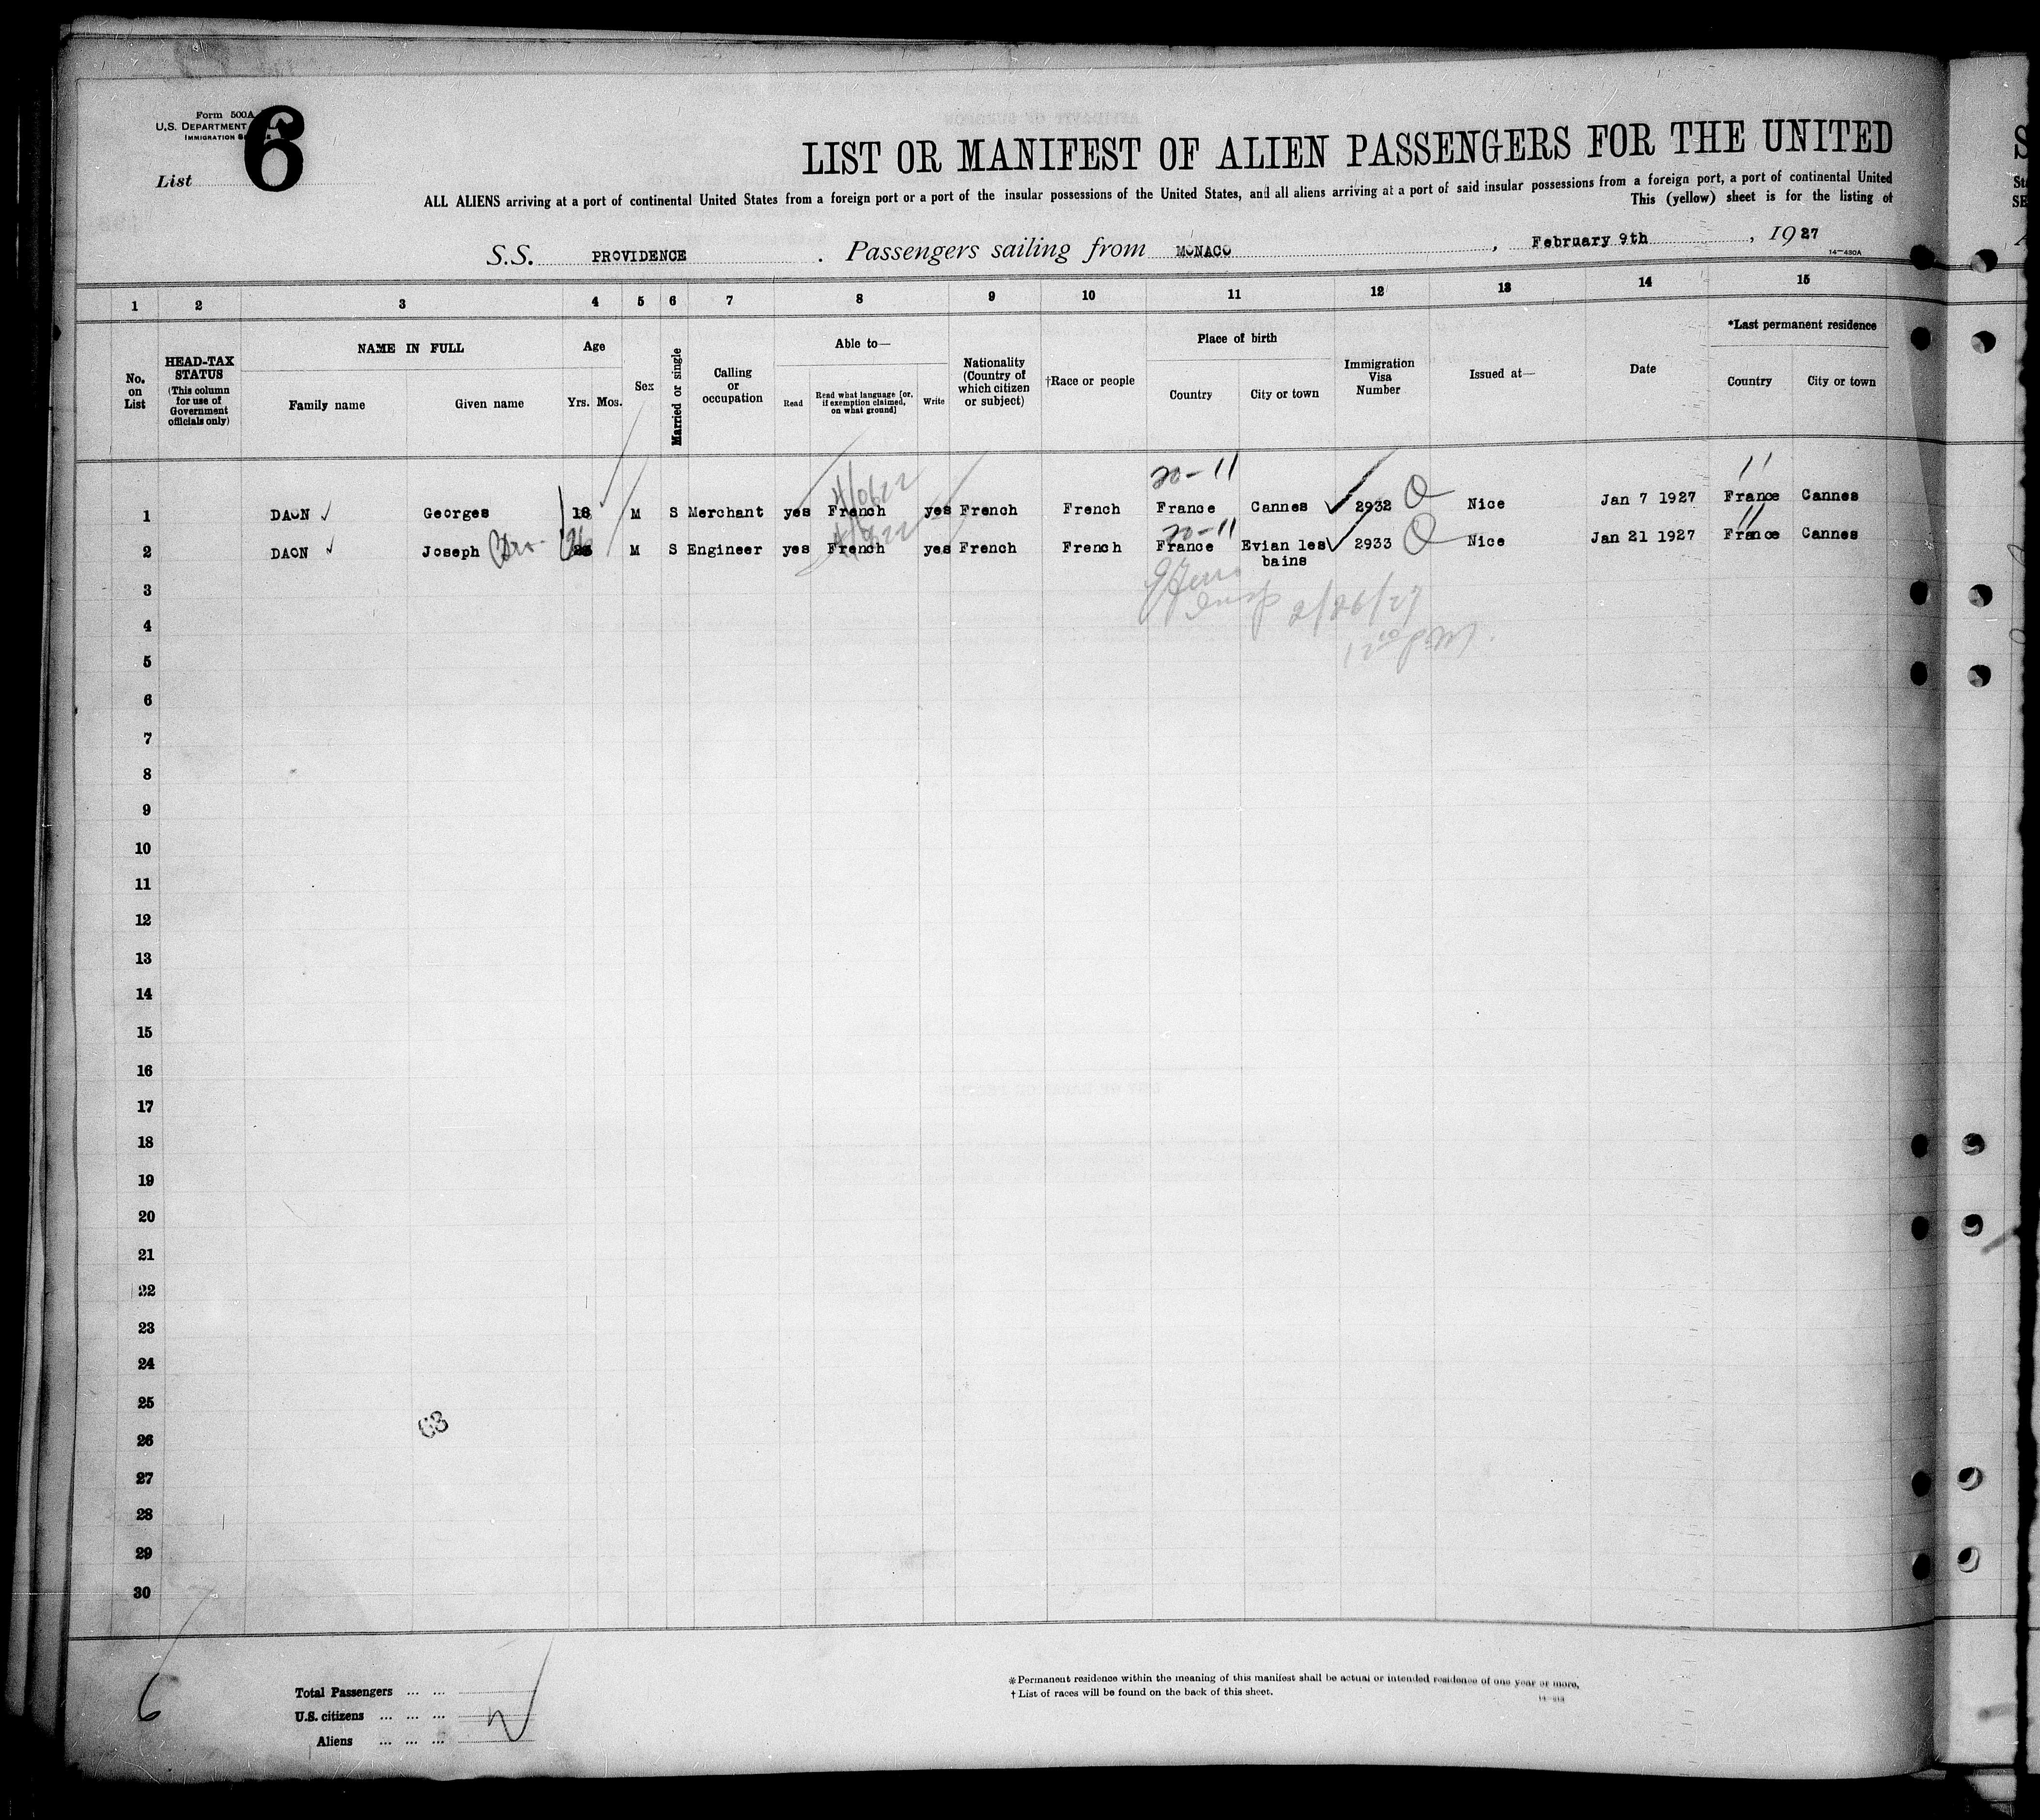 Form 500A
U.S. DEPARTMENT
IMMIGRATION
List 6
LIST OR MANIFEST OF ALIEN PASSENGERS FOR THE UNITED
ALL ALIENS arriving at a port of continental United States from a foreign port or a port of the insular possessions of the United States, and all aliens arriving at a port of said insular possessions from a foreign port, a port of continental United
This (yellow) sheet is for the listing of
S.S. PROVIDENCE . Passengers sailing from MONACO , February 9th , 1927
14—430A
1 2 3 4 5 6 7 8 9 10 11 12 13 14 15
No. on List
HEAD-TAX STATUS (This column for use of Government officials only)
NAME IN FULL
Family name Given name
Age
Yrs. Mos.
Sex
Married or single
Calling or occupation
Able to—
Read Read what language [or, if exemption claimed, on what ground] Write
Nationality (Country of which citizen or subject)
†Race or people
Place of birth
Country City or town
Immigration Visa Number
Issued at—
Date
*Last permanent residence
Country City or town
20-11 11
1 DAON Georges 18 M S Merchant yes French yes French French France Cannes 2932 Nice Jan 7 1927 France Cannes
20-11 11
2 DAON Joseph Bro. 26 M S Engineer yes French yes French French France Evian les bains 2933 Nice Jan 21 1927 France Cannes
3
Insp 2/26/27
4
12 10 PM.
5
6
7
8
9
10
11
12
13
14
15
16
17
18
19
20
21
22
23
24
25
26
27
28
29
30
6
Total Passengers ... ...
U.S. citizens ... ... ...
Aliens ... ... ...
2
*Permanent residence within the meaning of this manifest shall be actual or intended residence of one year or more.
† List of races will be found on the back of this sheet.